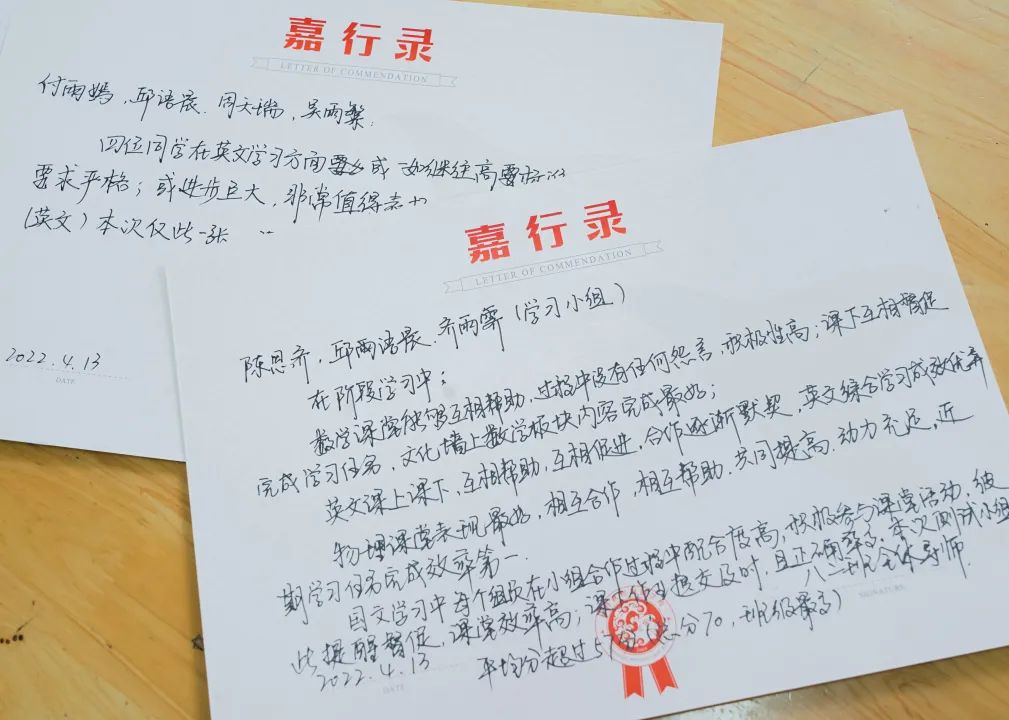 嘉行录
LETTER OF COMMENDATION
付雨嫣，邱语晨，周天瑞，吴雨粲：
四位同学在英文学习方面要么或 如继续高要求
要求严格；或进步巨大，非常值得嘉
（英文）本次仅此一张
2022.4.13
DATE
嘉行录
LETTER OF COMMENDATION
陈思齐，邱两语晨，齐雨霏（学习小组）
在阶段学习中：
数学课堂能够互相帮助，过程中没有任何怨言，积极性高；课下互相督促
完成学习任务，文化墙上数学板块内容完成最好；
英文课上课下，互相帮助，互相促进，合作逐渐默契，英文综合学习成效优异
物理课堂表现最好，相互合作，相互帮助，共同提高，动力充足，近
期学习任务完成效率第一．
国文学习中每个组员在小组合作过程中配合度高，积极参与课堂活动，彼
此提醒督促，课堂效率高；课下作业提交及时，且正确率高．本次测试小组
平均分超过57分（总分70，班级最高）
八二班全体导师
SIGNATURE
2022.4.13
DATE